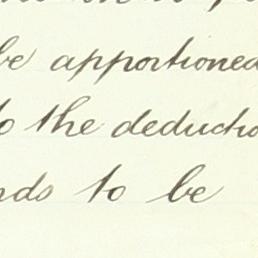 be apportioned
to the deductio
nds to be